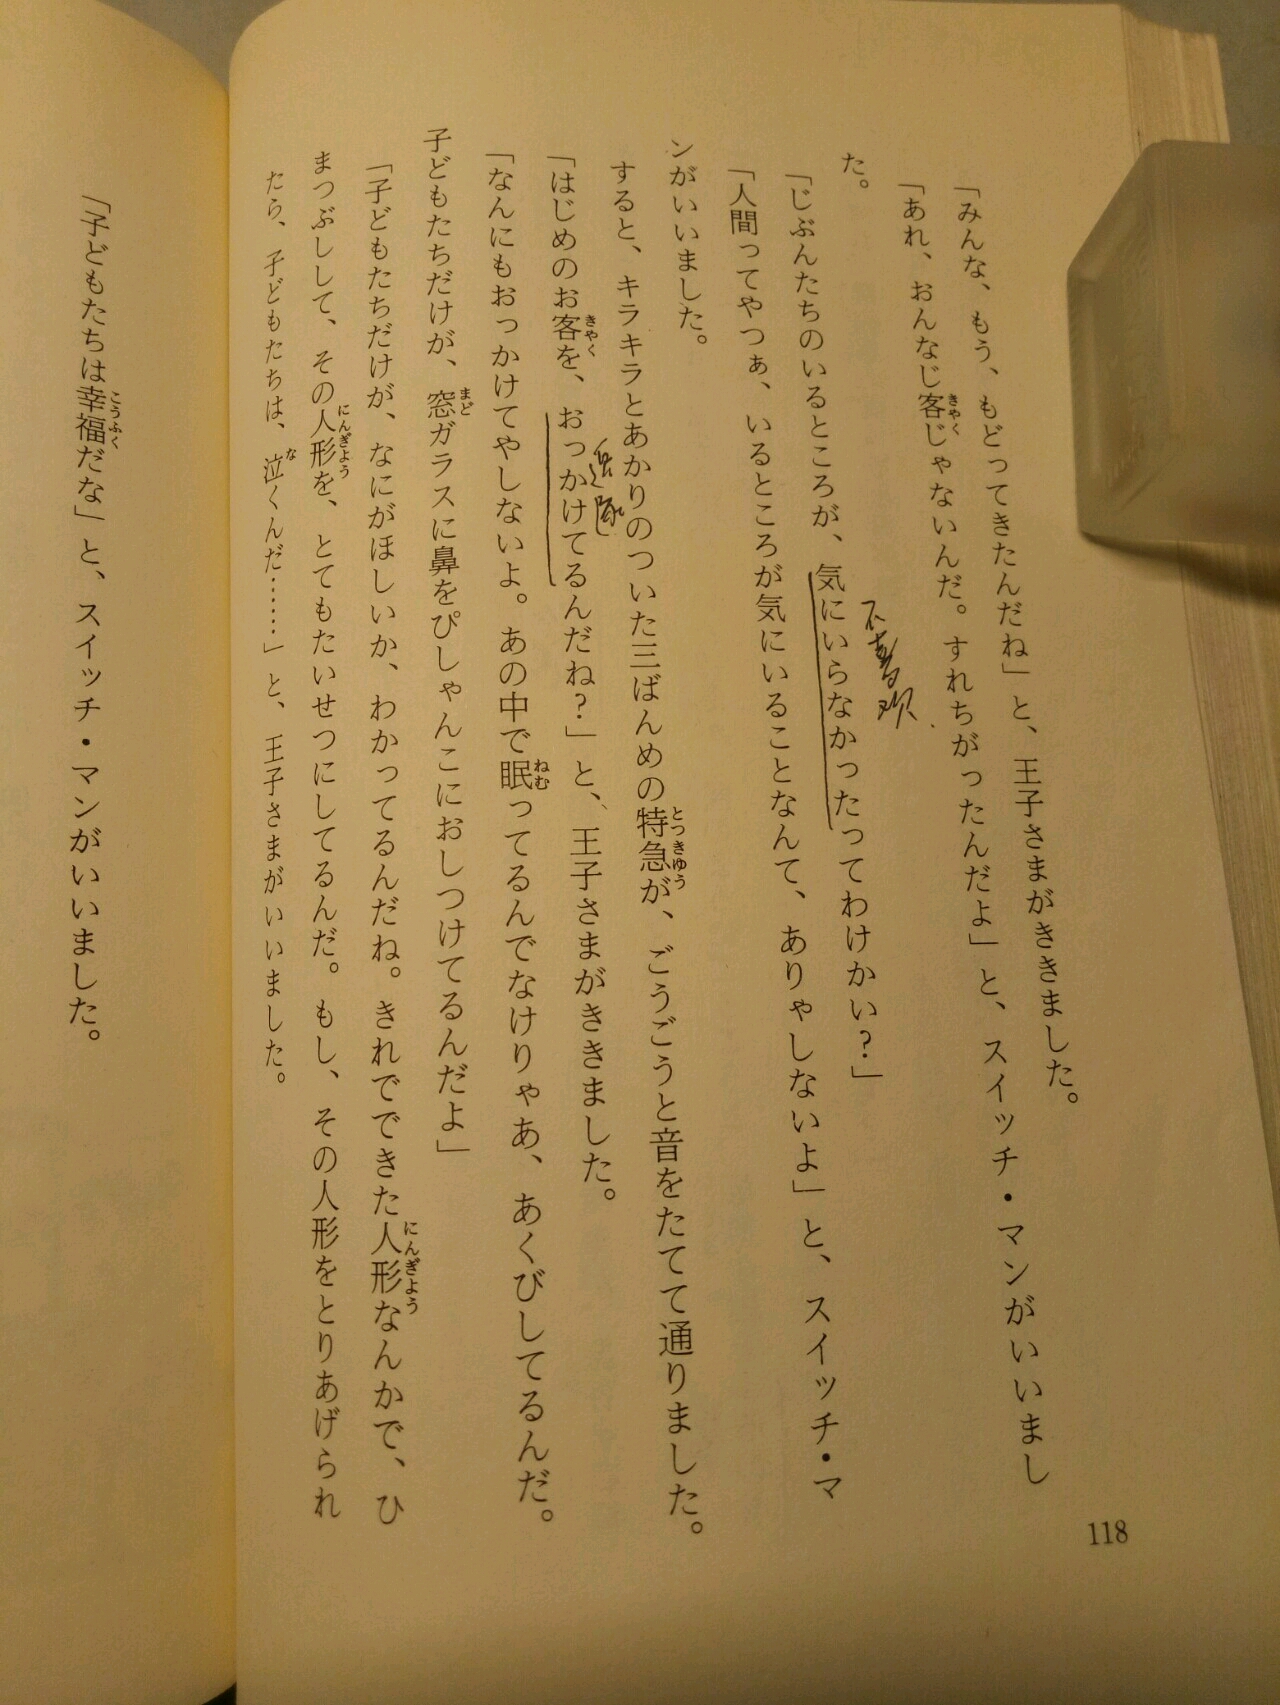 「みんな、もう、もどってきたんだね」と、王子さまがききました。
「あれ、おんなじ客じゃないんだ。すれちがったんだよ」と、スイッチ・マンがいいまし
た。
「じぶんたちのいるところが、気にいらなかったってわけかい?」
「人間ってやつぁ、いるところが気にいることなんて、ありゃしないよ」と、スイッチ・マ
ンがいいました。
すると、キラキラとあかりのついた三ばんめの特急が、ごうごうと音をたてて通りました。
「はじめのお客を、おっかけてるんだね?」と、王子さまがききました。
「なんにもおっかけてやしないよ。あの中で眠ってるんでなけりゃあ、あくびしてるんだ。
子どもたちだけが、窓ガラスに鼻をぴしゃんこにおしつけてるんだよ」
「子どもたちだけが、なにがほしいか、わかってるんだね。きれでできた人形なんかで、ひ
まつぶしして、その人形を、とてもたいせつにしてるんだ。もし、その人形をとりあげられ
たら、子どもたちは、泣くんだ……」と、王子さまがいいました。
「子どもたちは幸福だな」と、スイッチ・マンがいいました。
きゃく
不喜欢
とっきゅう
きゃく
追逐
ねむ
まど
にんぎょう
にんぎょう
な
こうふく
118